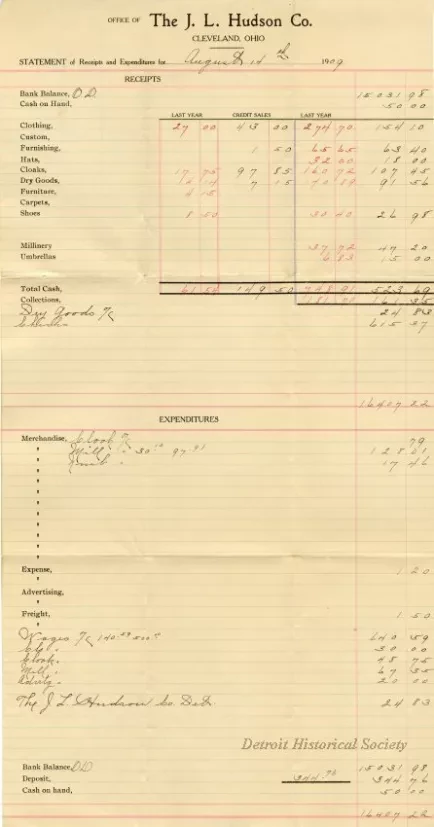 OFFICE OF The J. L. Hudson Co.
CLEVELAND, OHIO
STATEMENT of Receipts and Expenditures for August 14th 1909
RECEIPTS
Bank Balance, O D 15031 98
Cash on Hand, 50 00
LAST YEAR CREDIT SALES LAST YEAR
Clothing, 27 00 43 00 274 70 154 10
Custom,
Furnishing, 1 50 65 65 63 40
Hats, 32 00 18 00
Cloaks, 17 75 97 85 160 72 107 45
Dry Goods, 14 7 15 70 89 91 56
Furniture, 4 15
Carpets,
Shoes 8 50 30 40 26 98
Millinery 37 72 47 20
Umbrellas 6 83 15 00
Total Cash, 61 54 149 50 748 91 523 69
Collections, 181 161 35
Dry Goods 24 83
615 37
16407 22
EXPENDITURES
Merchandise, Cloak 79
Mill 30th 97 128 61
17 46
Expense, 1 20
Advertising,
Freight, 1 50
Wages 140 640 59
30 00
Cloak 48 75
Mill. 67 35
20 00
The J L Hudson Co. Det 24 83
Detroit Historical Society
Bank Balance, OD 15031 98
Deposit, 344.76 344 76
Cash on hand, 50 00
16407 22